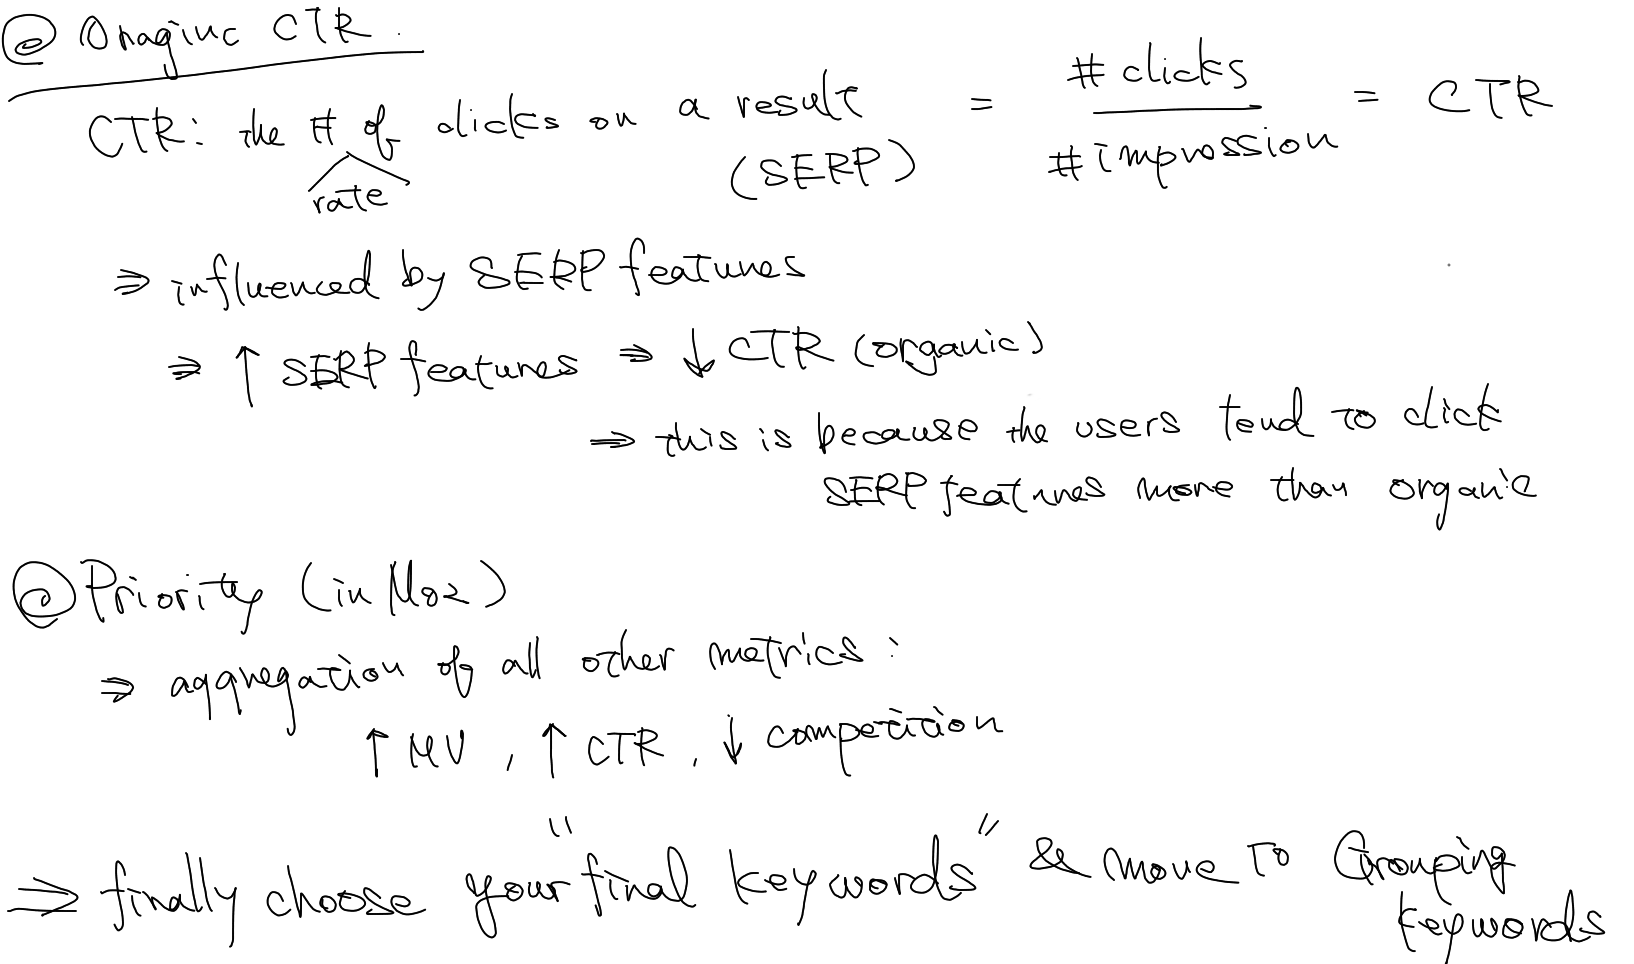 @ Oraginc CTR.
CTR: the # of clicks on a result (SERP) = # clicks / # impression = CTR
rate
⇒ influenced by SERP features
⇒ ↑ SERP features ⇒ ↓ CTR (organic)
⇒ this is because the users tend to click
SERP features more than organic
@ Priority (in Moz)
⇒ aggregation of all other metrics:
↑ MV, ↑ CTR, ↓ competition
⇒ finally choose your "final keywords" & move to Grouping
keywords